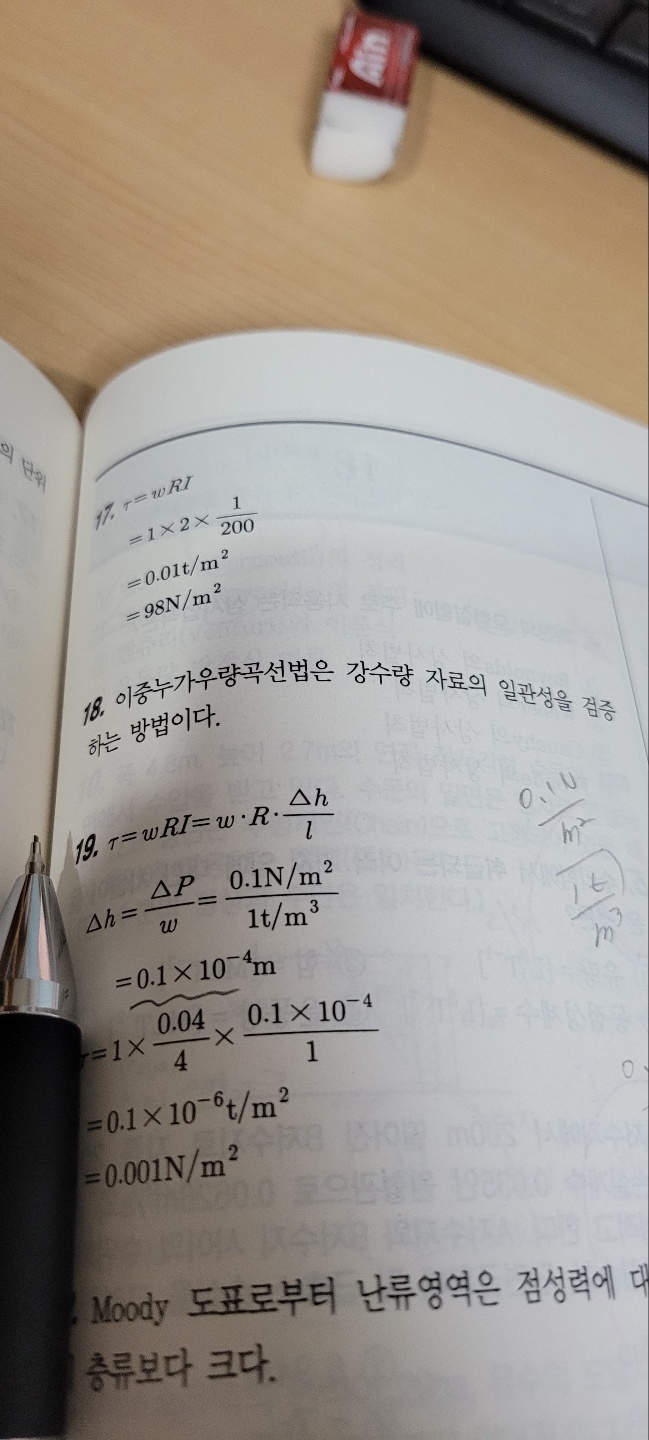 Ain
의 단위
17. τ=wRI
=1×2×1/200
=0.01t/m²
=98N/m²
18. 이중누가우량곡선법은 강수량 자료의 일관성을 검증
하는 방법이다.
19. τ=wRI=w·R·△h/l
△h=△P/w=0.1N/m²/1t/m³
=0.1×10⁻⁴m
τ=1×0.04/4×0.1×10⁻⁴/1
=0.1×10⁻⁶t/m²
=0.001N/m²
Moody 도표로부터 난류영역은 점성력에 대
층류보다 크다.
0.1N/m²
1t/m³